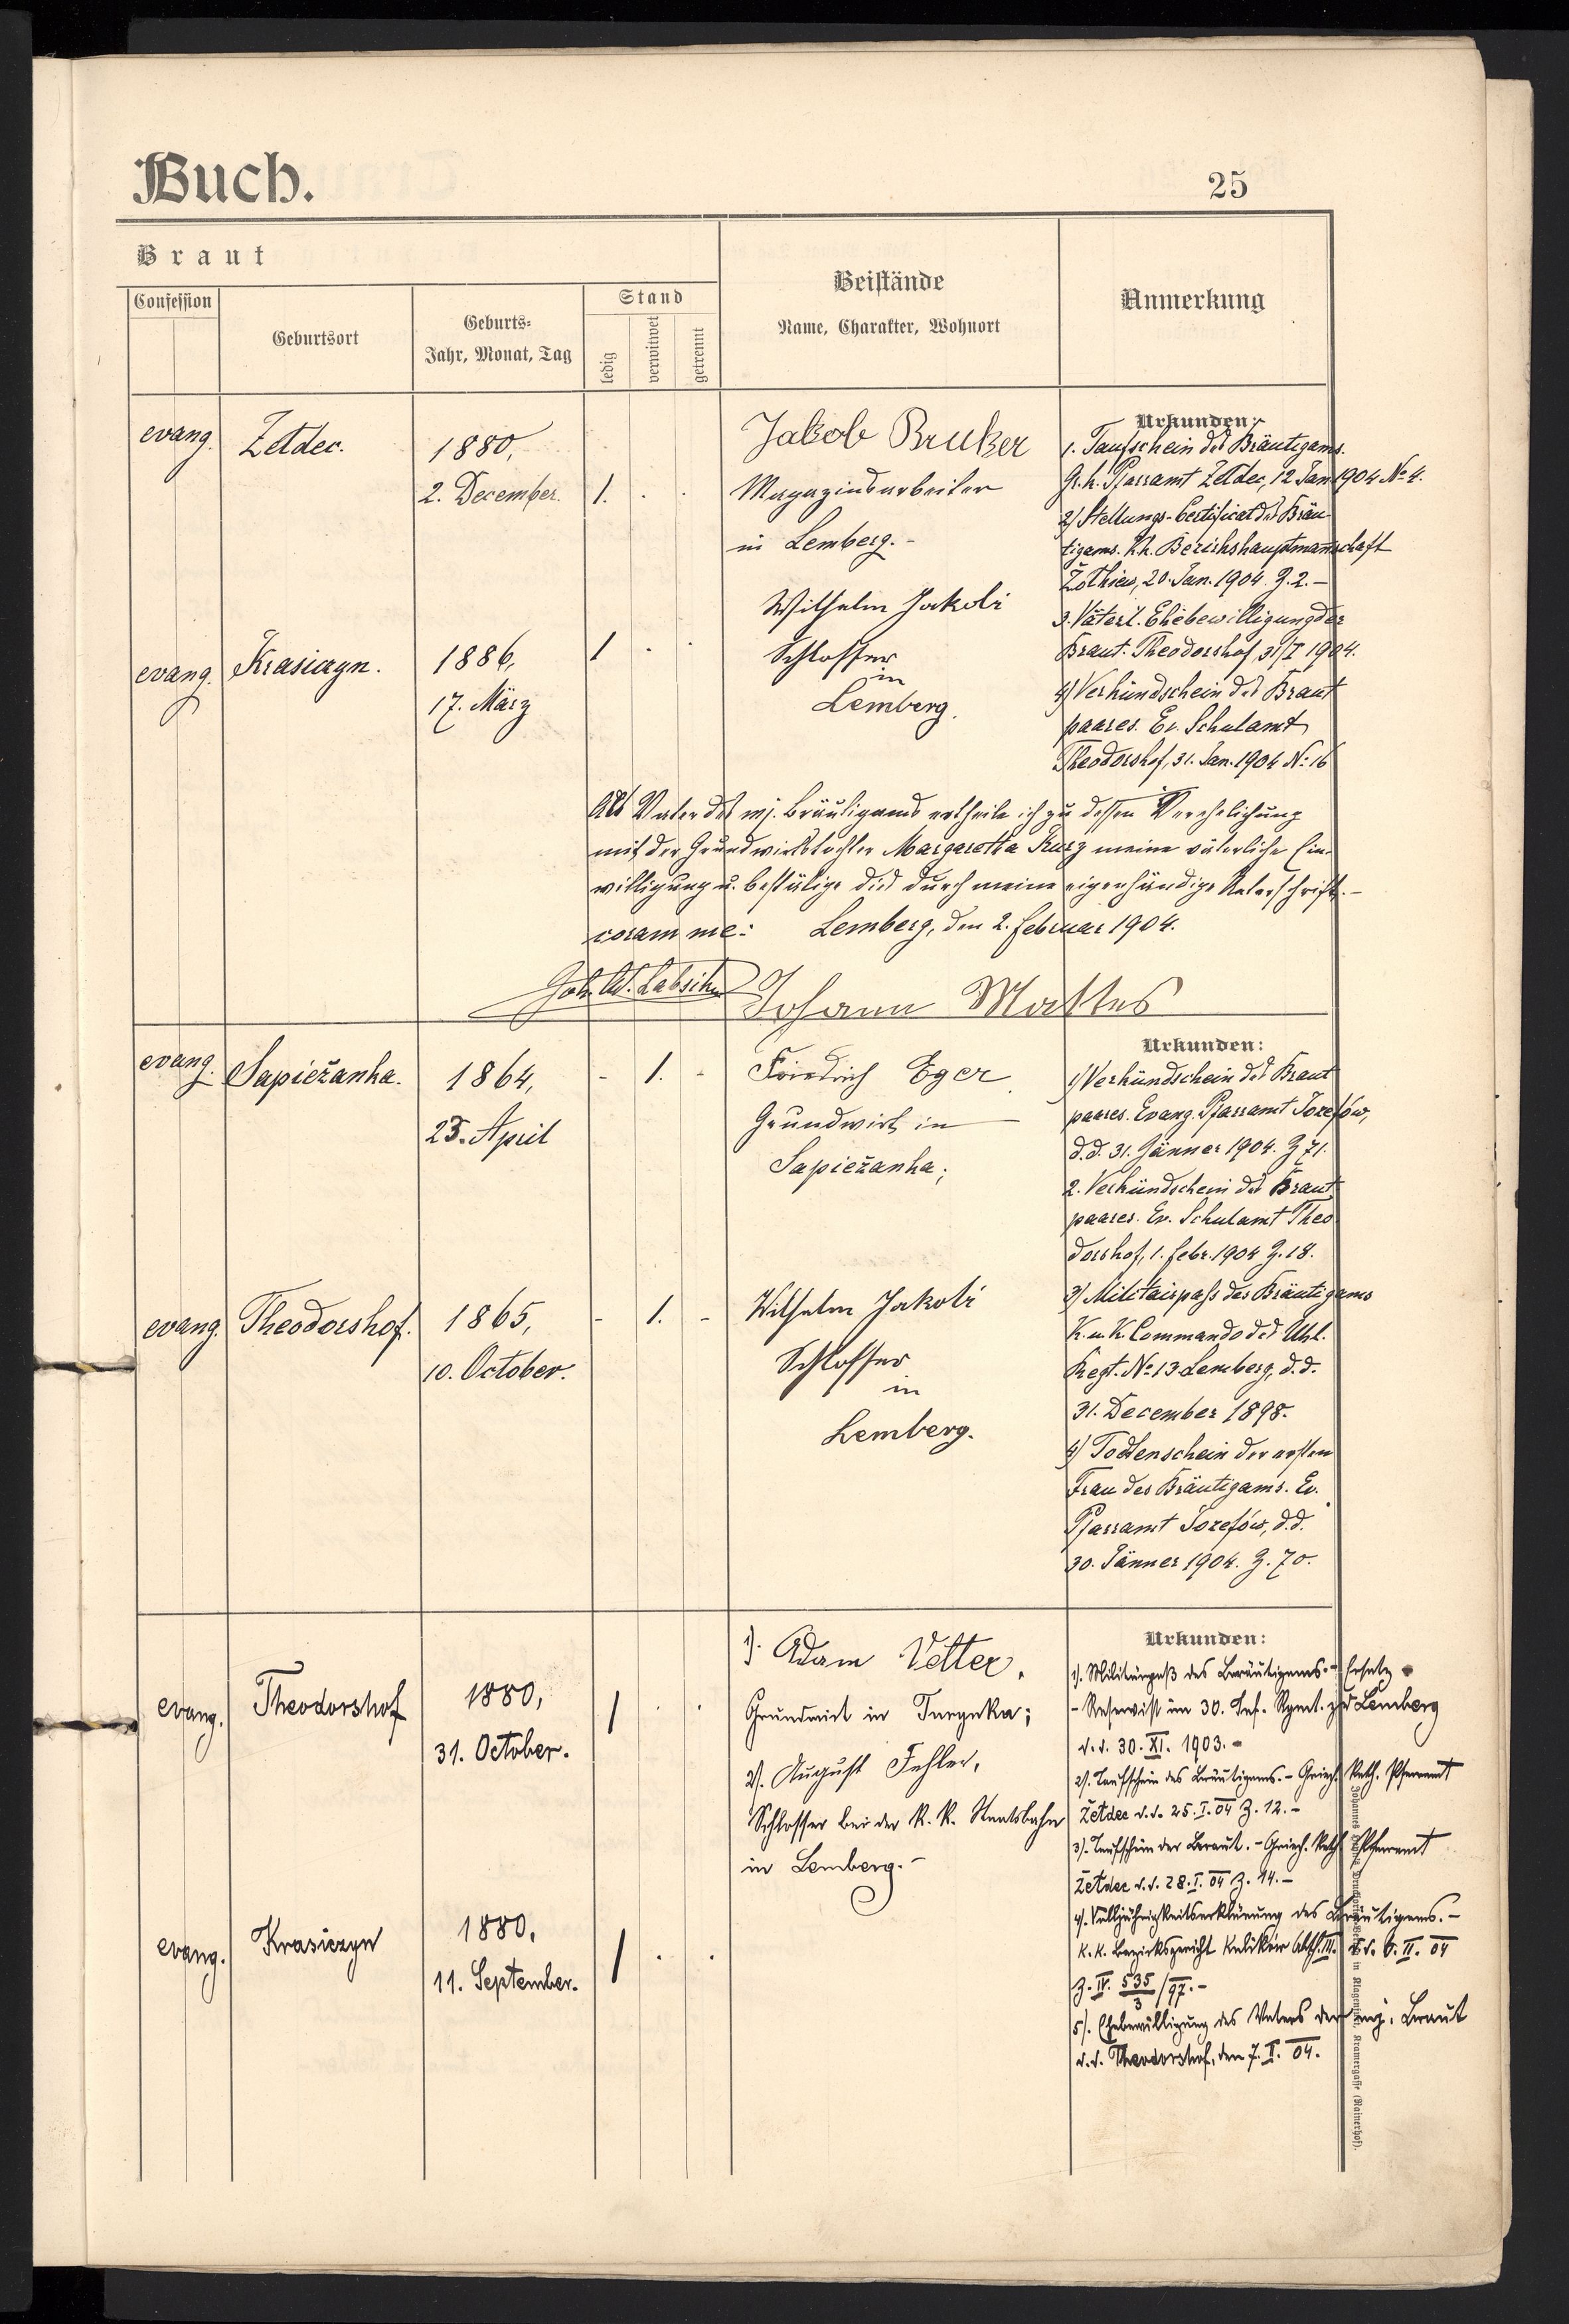 Buch.
25
Braut
Confession
Geburtsort
Geburts-
Jahr, Monat, Tag
Stand
ledig
verwitwet
getrennt
Beistände
Name, Charakter, Wohnort
Anmerkung
evang.
Żełdec.
1880,
2. December.
1. . .
Jakob Bruker
Magazinsarbeiter
in Lemberg. -
Wilhelm Jakobi
Schlosser
in
Lemberg.
evang.
Krasiczyn.
1886,
17. März
1 . .
Urkunden:
1. Taufschein des Bräutigams.
Gr. k. Pfarramt Żełdec, 12 Jan 1904 No 4.
2) Stellungs-Certificat des Bräu-
tigams. k.k. Bezirkshauptmannschaft
Żołkiew, 20. Jan. 1904. Z. 2. -
3. Väterl. Ehebewilligung der
Braut. Theodorshof, 31/I 1904.
4) Verkündschein des Braut
paares. Ev. Schulamt
Theodorshof, 31. Jan. 1904 No 16
Als Vater des mj. Bräutigams ertheile ich zu dessen Verehelichung
mit der Grundwirtstochter Margaretha Kurz meine väterliche Ein-
willigung u. bestätige dies durch meine eigenhändige Unterschrift. -
coram me: Lemberg, den 2. Februar 1904.
Johann Mattes
evang.
Sapieżanka.
1864,
23. April
- 1. -
Friedrich Eger
Grundwirt in
Sapieżanka;
evang.
Theodorshof.
1865,
10. October.
- 1. -
Wilhelm Jakobi
Schlosser
in
Lemberg.
Urkunden:
1) Verkündschein des Braut
paares. Evang. Pfarramt Josefów,
d.d. 31. Jänner 1904. Z 71.
2. Verkündschein des Braut
paares. Ev. Schulamt Theo
dorshof, 1. Febr. 1904 Z. 18.
3) Militairpass des Bräutigams
K. u. K. Commando des Uhl.
Regt. No 13 Lemberg, d.d.
31. December 1898.
4) Todtenschein der ersten
Frau des Bräutigams. Ev.
Pfarramt Josefów, d.d.
30. Jänner 1904. Z. 70.
evang.
Theodorshof
1880,
31. October.
1 . .
1). Adam Vetter,
Grundwirt in Turynka;
2). August Fehler,
Schlosser bei der k. k. Staatsbahn
in Lemberg. -
evang.
Krasiczyn
1880,
11. September.
1 . .
Urkunden:
1). Militärpaß des Bräutigams. - Ersatz
- Reservist im 30. Inf. Rgmt. zu Lemberg
d. d. 30. XI. 1903. -
2). Taufschein des Bräutigams. - Griech. Kath. Pfarramt
Żełdec d. d. 25. I. 04 Z. 12. -
3). Taufschein der Braut. - Griech. Kath. Pfarramt
Żełdec d. d. 28. I. 04 Z. 14. -
4). Volljährigkeitserklärung des Bräutigams. -
K. K. Bezirksgericht Kulików Abth. III. d. d. 6. II. 04
Z. IV. 535/3 /97. -
5). Ehebewilligung des Vaters der mj. Braut
d. d. Theodorshof, den 7. II. 04.
Kramergasse (Rainerhof).